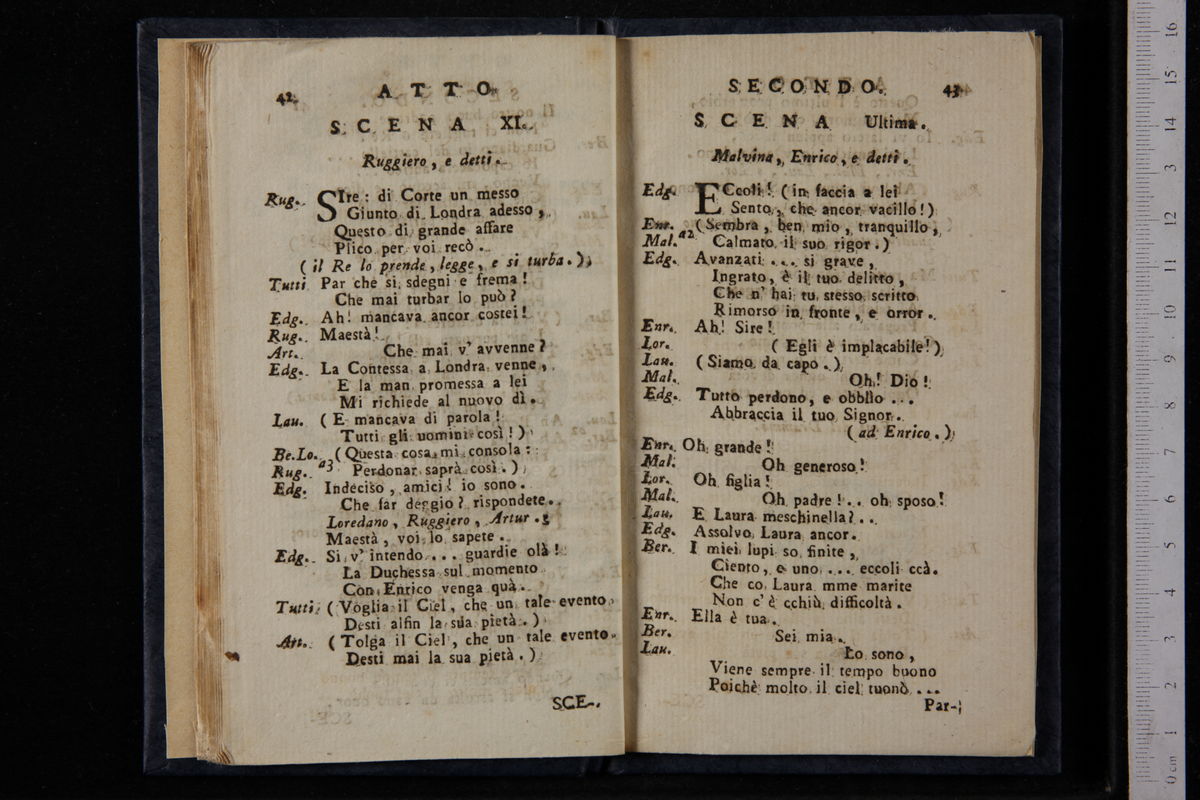 42 ATTO
SCENA XI.
Ruggiero, e detti.
Rug. SIre: di Corte un messo
Giunto di Londra adesso,
Questo di grande affare
Plico per voi recò.
(il Re lo prende, legge, e si turba.)
Tutti Par che si sdegni e frema!
Che mai turbar lo può?
Edg. Ah! mancava ancor costei!
Rug. Maestà!
Art. Che mai v' avvenne?
Edg. La Contessa a Londra venne,
E la man promessa a lei
Mi richiede al nuovo dì.
Lau. (E mancava di parola!
Tutti gli uomini così!)
Be.Lo. (Questa cosa mi consola:
Rug. a3 Perdonar saprà così.)
Edg. Indeciso, amici! io sono.
Che far deggio? rispondete.
Loredano, Ruggiero, Artur.
Maestà, voi lo sapete.
Edg. Si v' intendo.... guardie olà!
La Duchessa sul momento
Con Enrico venga quà.
Tutti (Voglia il Ciel, che un tale evento
Desti alfin la sua pietà.)
Art. (Tolga il Ciel, che un tale evento
Desti mai la sua pietà.)
SCE-
SECONDO. 43
SCENA Ultima.
Malvina, Enrico, e detti.
Edg. ECcoli! (in faccia a lei
Sento, che ancor vacillo!)
Enr. (Sembra, ben mio, tranquillo,
Mal. a2 Calmato il suo rigor.)
Edg. Avanzati.... si grave,
Ingrato, è il tuo delitto,
Che n' hai tu stesso scritto
Rimorso in fronte, e orror.
Enr. Ah! Sire!
Lor. (Egli è implacabile!)
Lau. (Siamo da capo.)
Mal. Oh! Dio!
Edg. Tutto perdono, e obblìo...
Abbraccia il tuo Signor.
(ad Enrico.)
Enr. Oh grande!
Mal. Oh generoso!
Lor. Oh figlia!
Mal. Oh padre!.. oh sposo!
Lau. E Laura meschinella?..
Edg. Assolvo Laura ancor.
Ber. I miei lupi so finite,
Ciento, e uno.... eccoli ccà.
Che co Laura mme marite
Non c' è cchiù difficoltà.
Enr. Ella è tua.
Ber. Sei mia.
Lau. Lo sono,
Viene sempre il tempo buono
Poichè molto il ciel tuonò...
Par-
16
15
14
13
12
11
10
9
8
7
6
5
4
3
2
1
0 cm